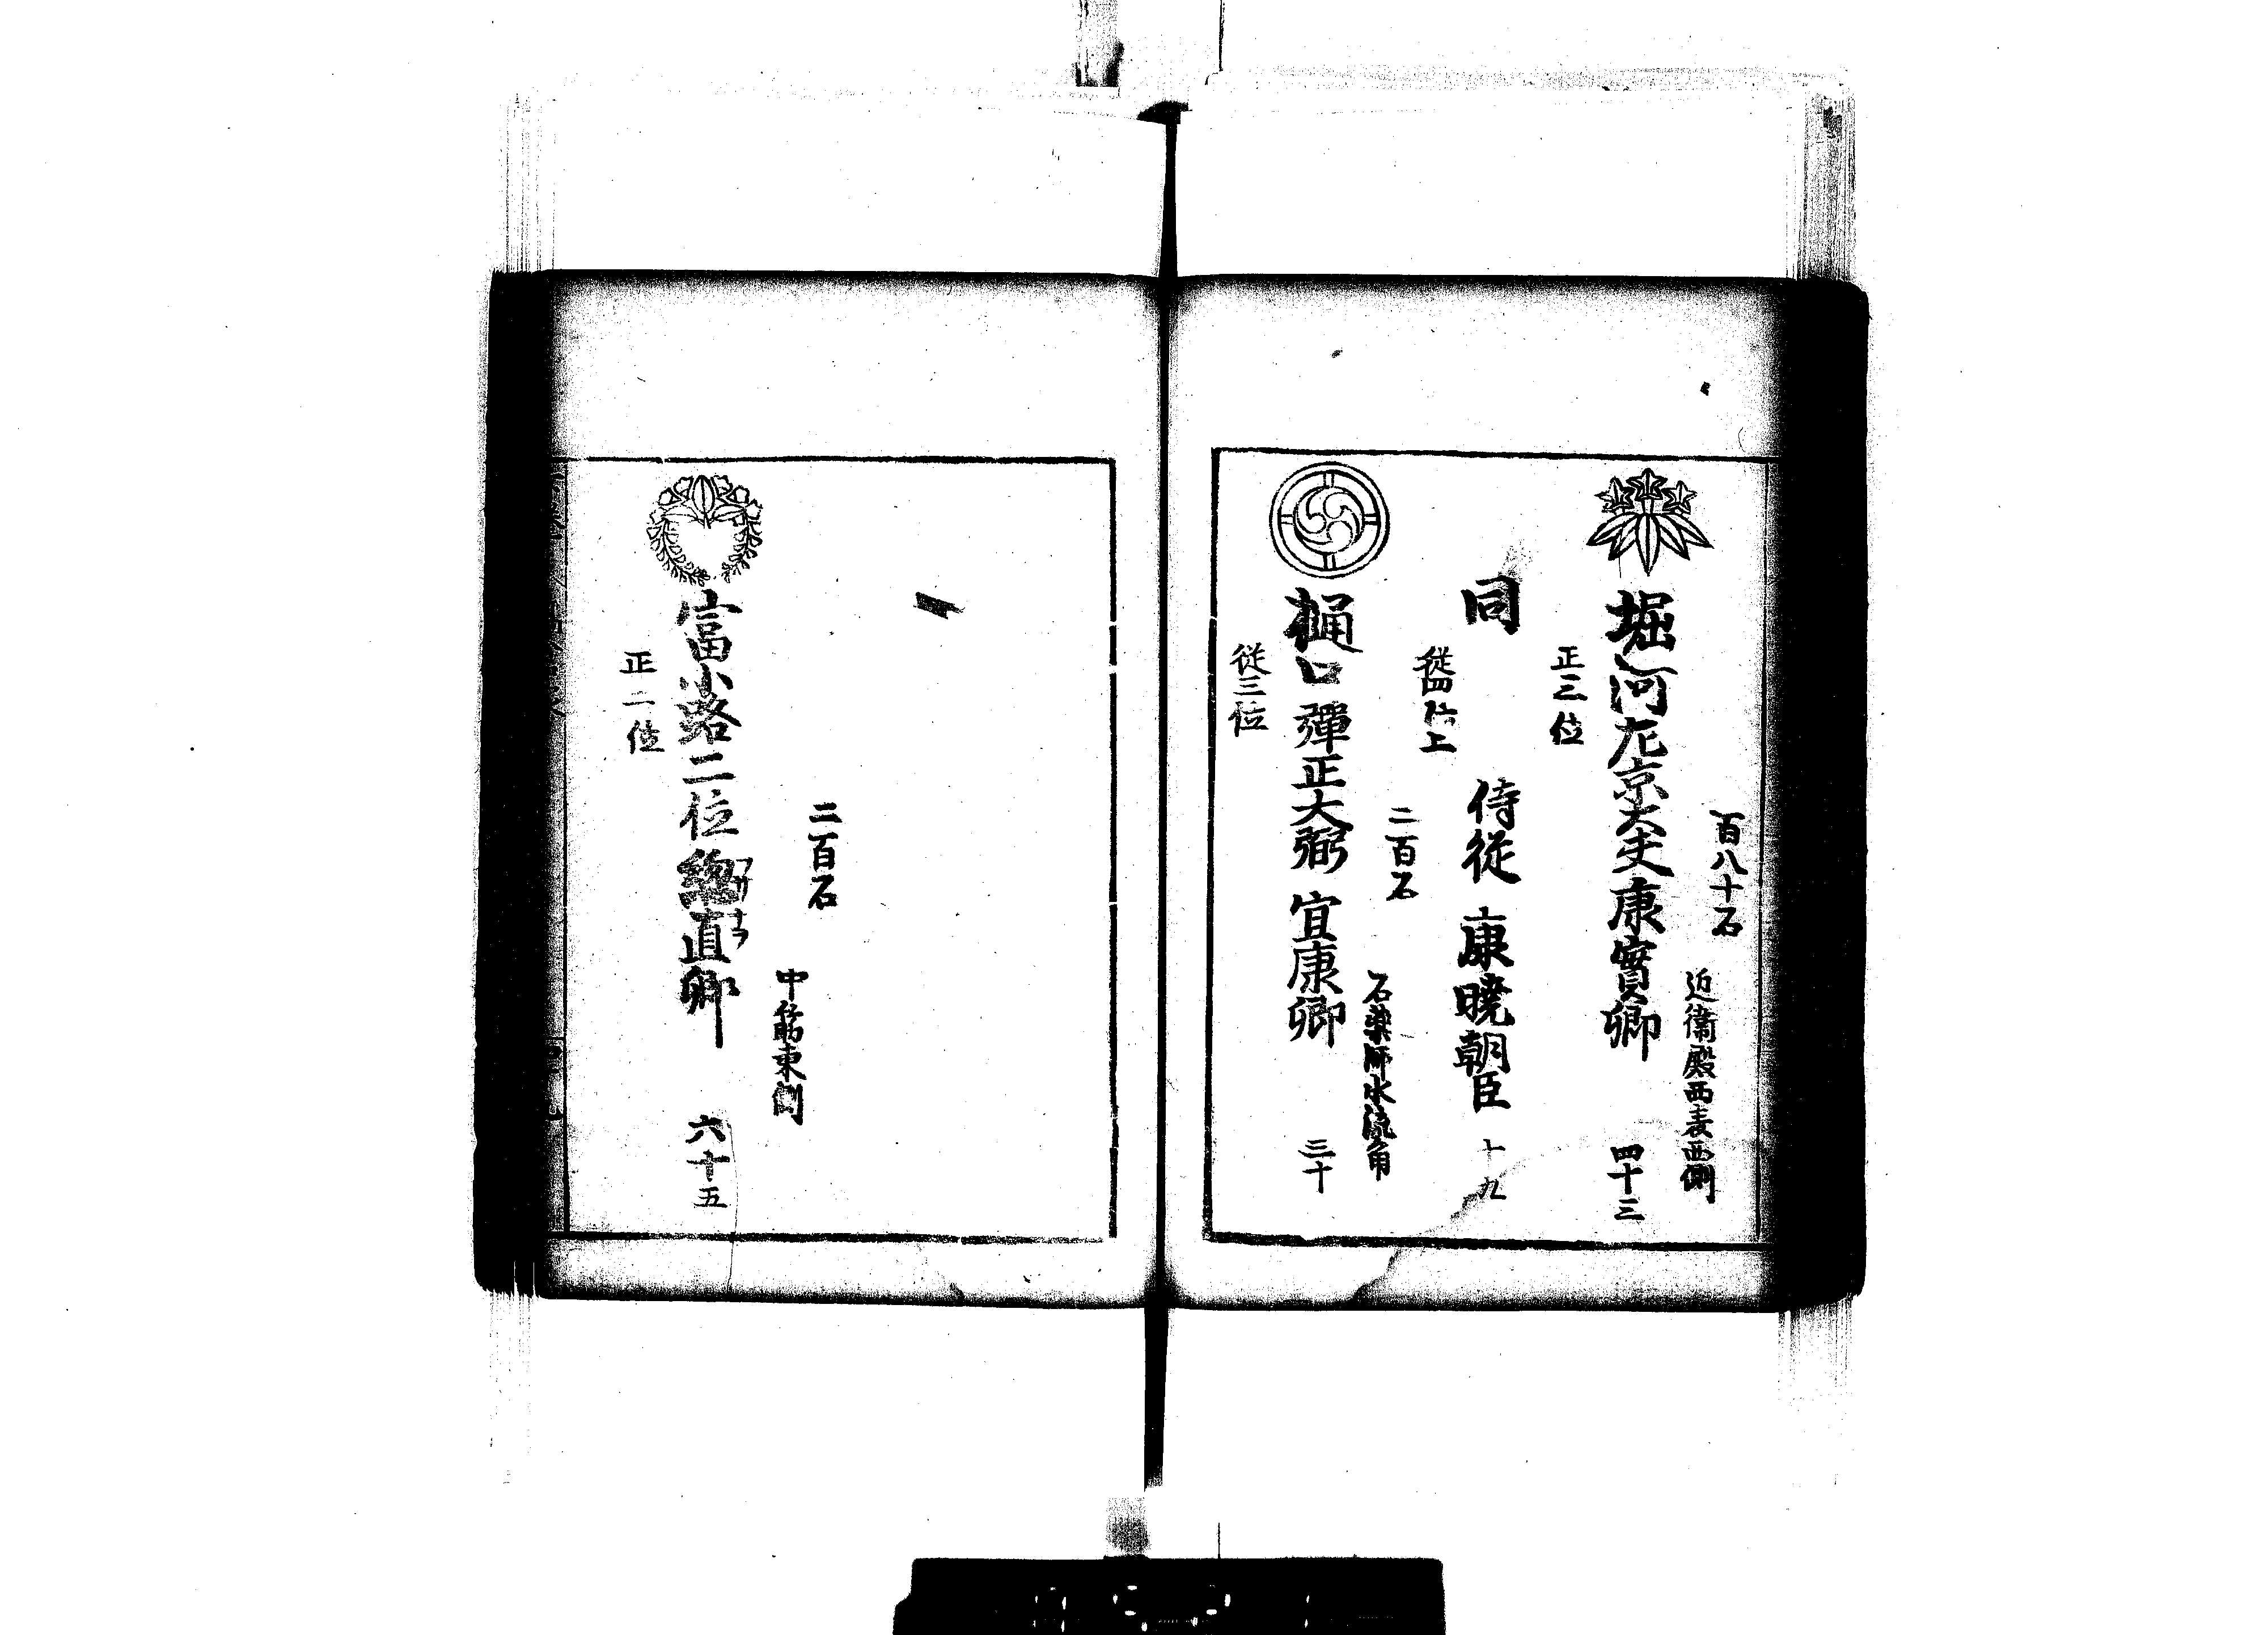 百八十石
近衞殿西表西側
堀河左京大夫康實卿　四十三
正三位
同　侍從　康曉朝臣　十九
從四位上
二百石
石藥師水流角
樋口彈正大弼　宜康卿　三十
從三位
二百石
中筋東側
富小路二位總直卿　六十五
フサナヲ
正二位